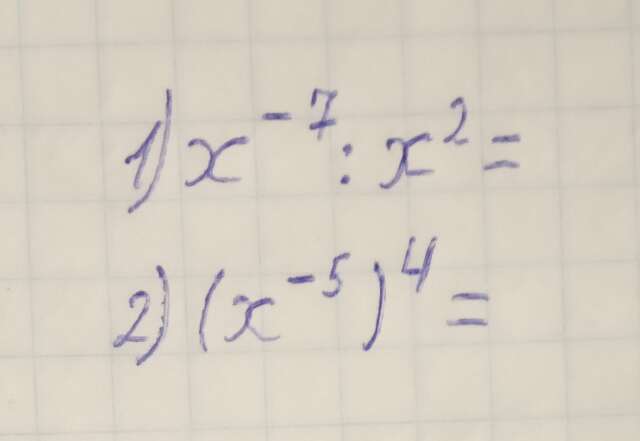 1) x⁻⁷ : x² =
2) (x⁻⁵)⁴ =